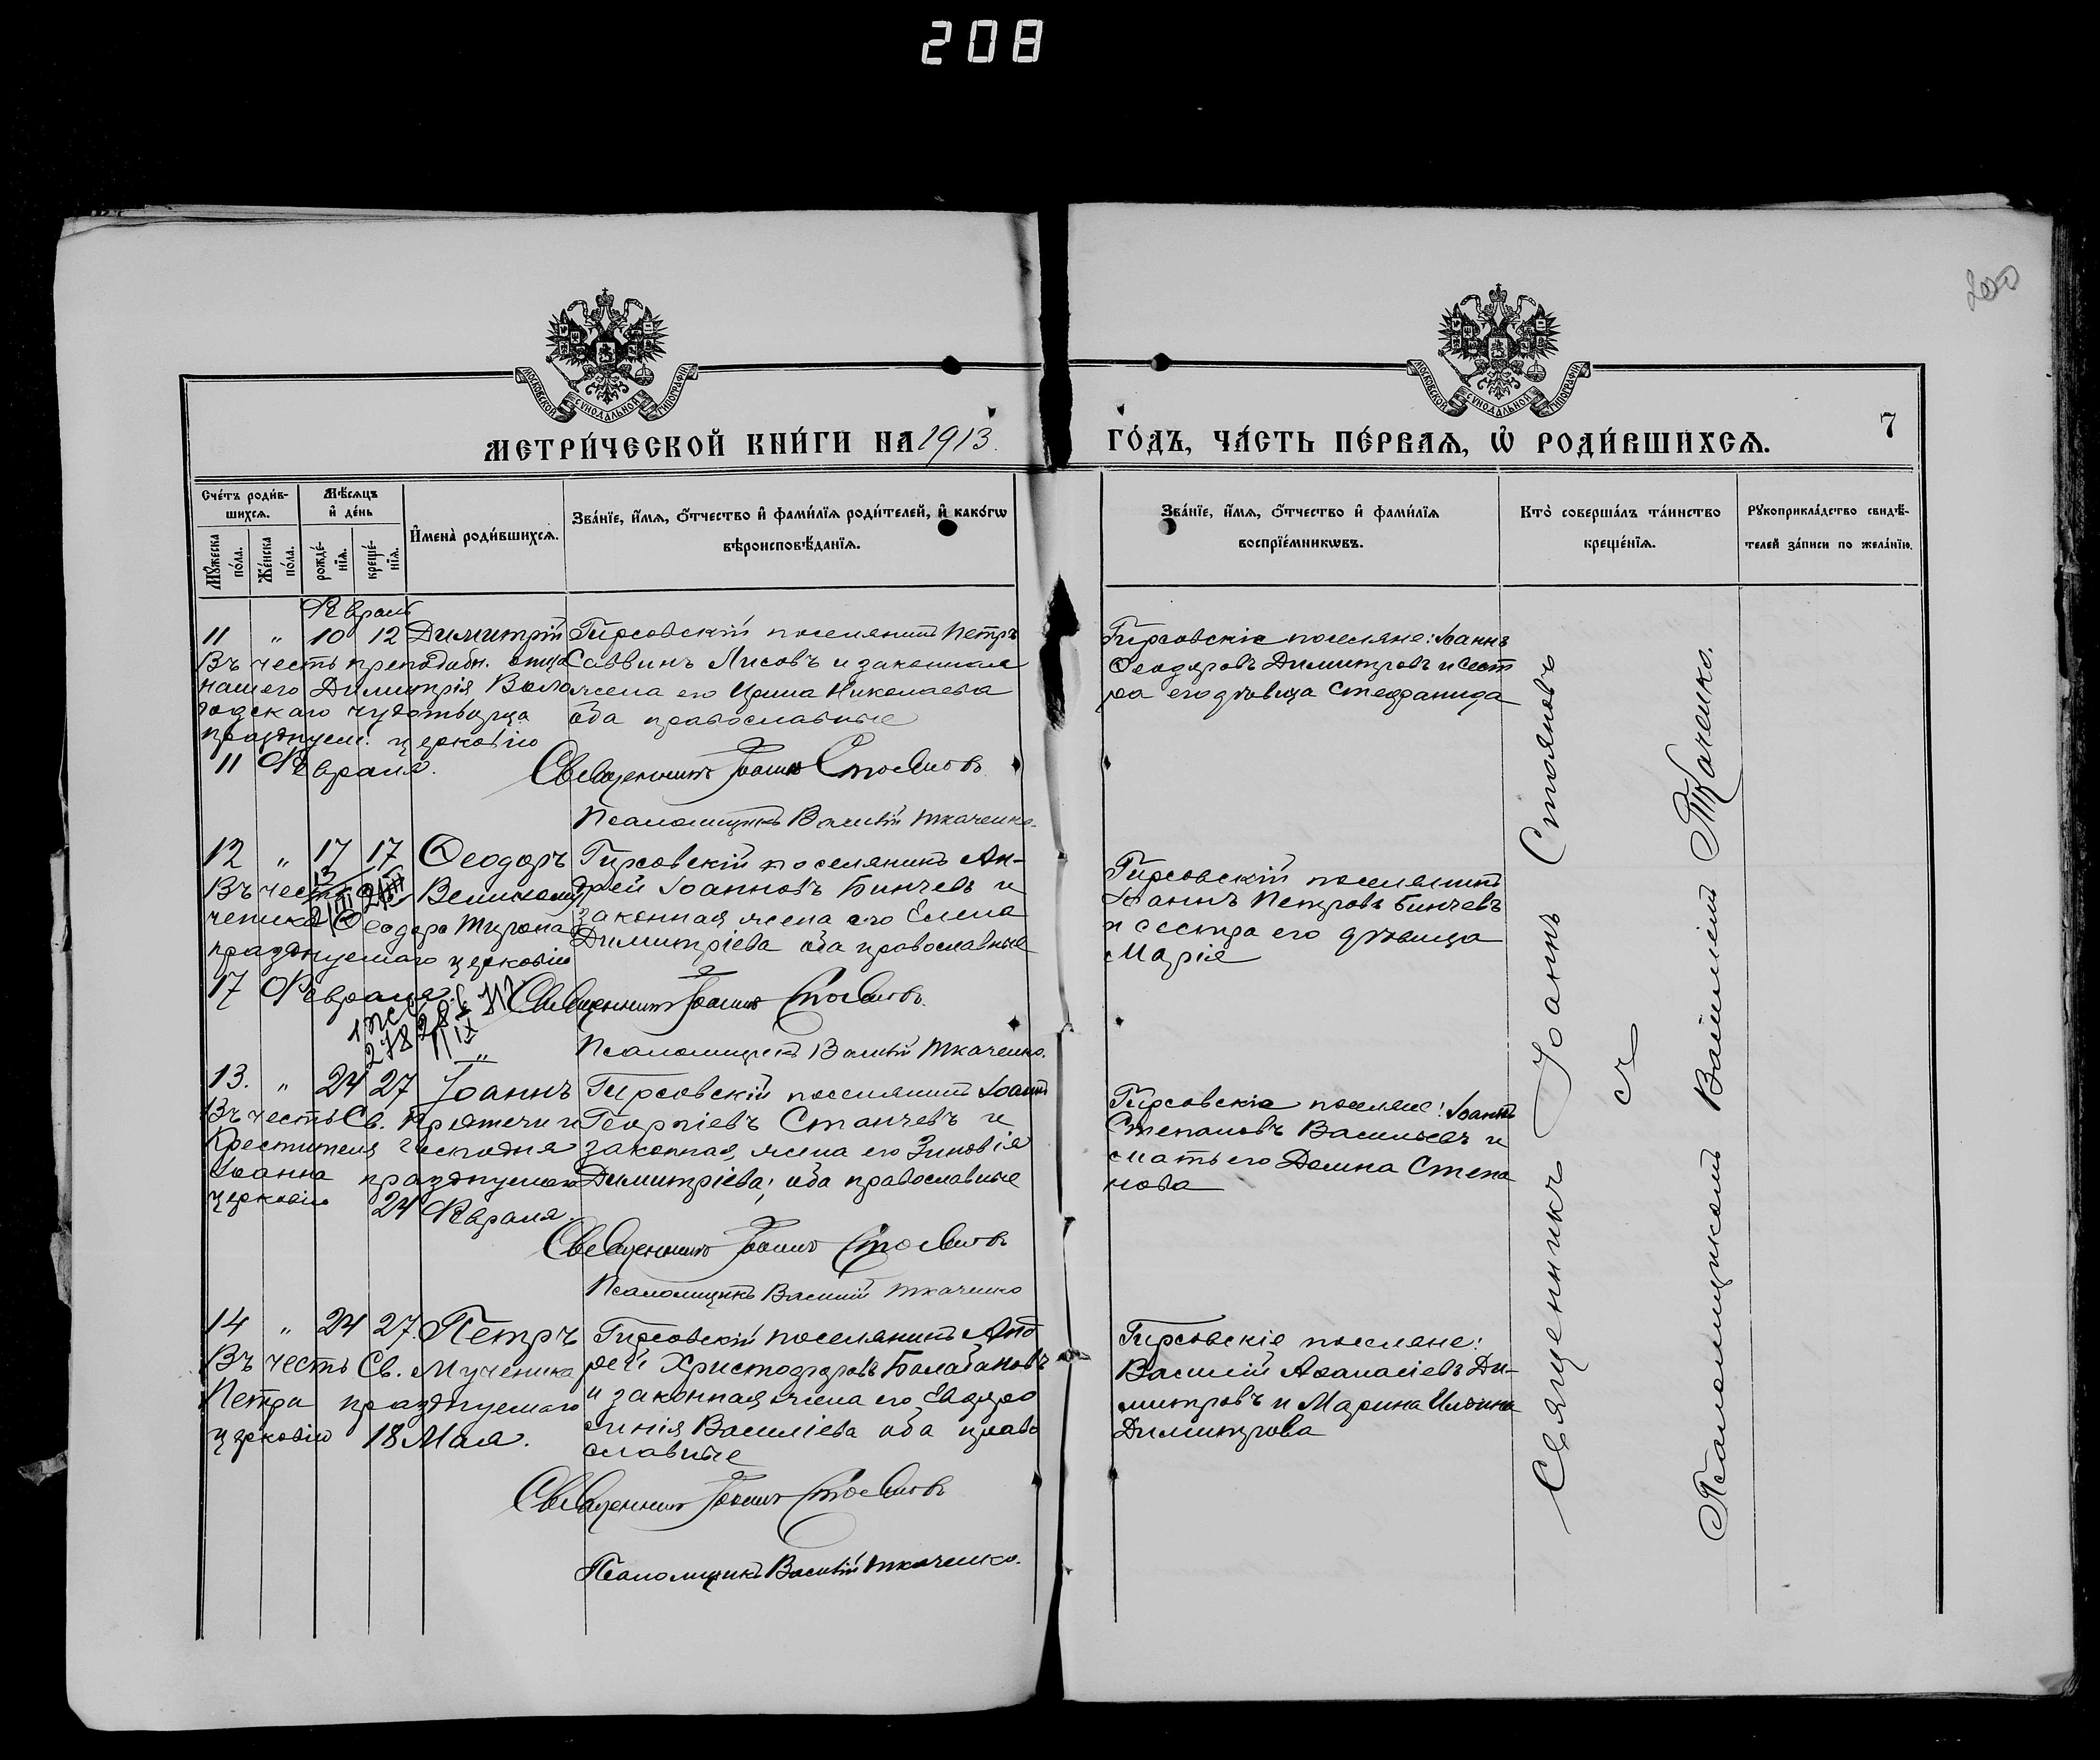 208
200
МОСКОВСКОЙ СѴНОДАЛЬНОЙ ТИПОГРАФІИ
МОСКОВСКОЙ СѴНОДАЛЬНОЙ ТИПОГРАФІИ
МЕТРИ́ЧЕСКОЙ КНИ́ГИ НА 1913.
ГО́ДЪ, ЧА́СТЬ ПЕ́РВАѦ, Ѡ҆ РОДИ́ВШИХСѦ.
7
Сче́тъ роди́в-
шихсѧ.
Мꙋ́жеска
по́ла.
Же́нска
по́ла.
Мѣ́сѧцъ
и҆ де́нь
рожде́-
нїѧ.
креще́-
нїѧ.
И҆мена̀ роди́вшихсѧ.
Зва́нїе, и҆́мѧ, ѻ҆́тчество и҆ фами́лїѧ роди́телей, и҆ како́гѡ
вѣроисповѣ́данїѧ.
Зва́нїе, и҆́мѧ, ѻ҆́тчество и҆ фами́лїѧ
воспрїе́мникѡвъ.
Кто̀ соверша́лъ та́инство
креще́нїѧ.
Рꙋкоприкла́дство свидѣ́-
телей за́писи по жела́нїю.
Февраль
11 " 10 12 Димитрій
Въ честь преподобн. отца
нашего Димитрія Воло
годскаго чудотворца
празднуем. церковію
11 Февраля.
Гирсовскій поселянинъ Петръ
Саввинъ Лисовъ и законная
жена его Ирина Николаева
оба православные
Священникъ Іоаннъ Стояновъ
Псаломщикъ Василій Ткаченко.
Гирсовскіе поселяне: Іоаннъ
Феодоровъ Димитровъ и сест
ра его дѣвица Стефанида
12 " 17 17 Ѳеодоръ
Въ честь Великому
ченика Ѳеодора Тирона
празднуемаго церковію
17 Февраля.
Гирсовскій поселянинъ Ан-
дрей Іоанновъ Бинчевъ и
законная жена его Елена
Димитріева оба православные
Священникъ Іоаннъ Стояновъ.
Псаломщикъ Василій Ткаченко.
Гирсовскій поселянинъ
Іоаннъ Петровъ Бинчевъ
и сестра его дѣвица
Марія
13. " 24 27 Іоаннъ
Въ честь Св. Предтечи и
Крестителя Господня
Іоанна празднуемаго
церковію 24 Февраля.
Гирсовскій поселянинъ Іоаннъ
Георгіевъ Станчевъ и
законная жена его Зиновія
Димитріева; оба православные
Священникъ Іоаннъ Стояновъ
Псаломщикъ Василій Ткаченко
Гирсовскіе поселяне: Іоаннъ
Степановъ Васильевъ и
мать его Домна Степа
нова
14 " 24 27. Петръ
Въ честь Св. Мученика
Петра празднуемаго
церковію 18 Мая.
Гирсовскій поселянинъ Анд
рей Христофоровъ Балабановъ
и законная жена его Евдро
синія Василіева оба право
славные
Священникъ Іоаннъ Стояновъ
Псаломщикъ Василій Ткаченко.
Гирсовскіе поселяне:
Василій Аѳанасіевъ Ди-
митровъ и Марина Ильина
Димитрова
Священникъ Іоаннъ Стояновъ
съ
Псаломщикомъ Василіемъ Ткаченко.